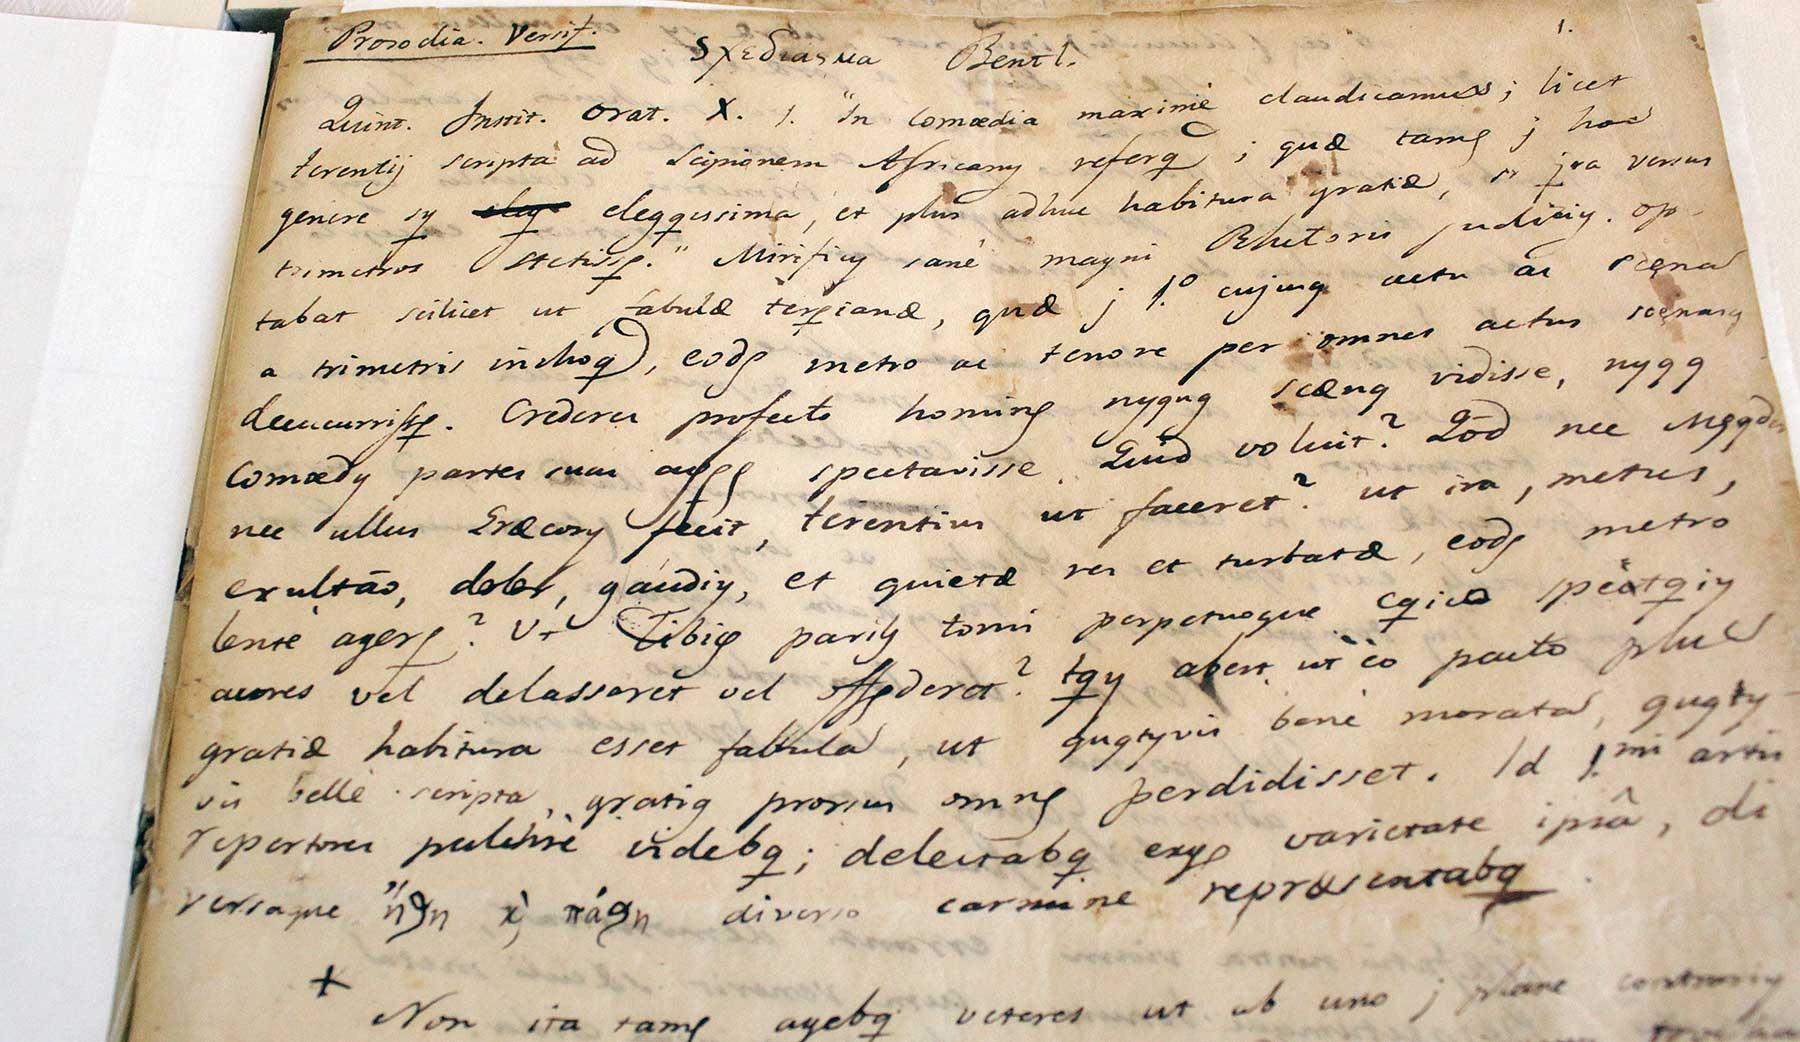 Prosodia. Versif.
1.
Sχεδιασμα Bentl.
Quint. Instit. Orat. X. 1. "In Comœdia maximè claudicamus; licet
terentij scripta ad Scipionem Africany referq; quæ tamę j hoc
genere sy elegqtissima, et plus adhuc habitura gratiæ, si jra versus
trimetros stetissę." Mirificy sanè magni Rhetoris judiciy. op-
tabat scilicet ut fabulæ terętianæ, quæ j 1.º cujusq actu ac scena
a trimetris inchoq, eodę metro ac tenore per omnes actus scenasq
decucurrissę. Crederes profecto hominę nyqug scænq vidisse, nyqq
comœdy partes suas agęę spectavisse. Quid voluit? Qōd nec Męqder
nec ullus Græcory fecit, terentius ut faceret? ut ira, metus,
exultāo, dolor, gaudiy, et quietæ res et turbatæ, eodę metro
lentè agerę? Ut Tibię parib toni perpetuoque cqicō spectqiy
aures vel delassaret vel offęderet? tqy abest ut eo pacto plus
gratiæ habitura esset fabula, ut qugtyvis benè morata, qugty-
vis bellè scripta, gratiq prorsus omnę perdidisset. Id 1.mi artis
repertores pulchrè videbq; delectabq ergo varietate ipsâ, di
versaque ἤθη κ̀ πάθη diverso carmine repræsentabq
+ Non ita tamę agebq veteres ut ab uno j plane contrariy